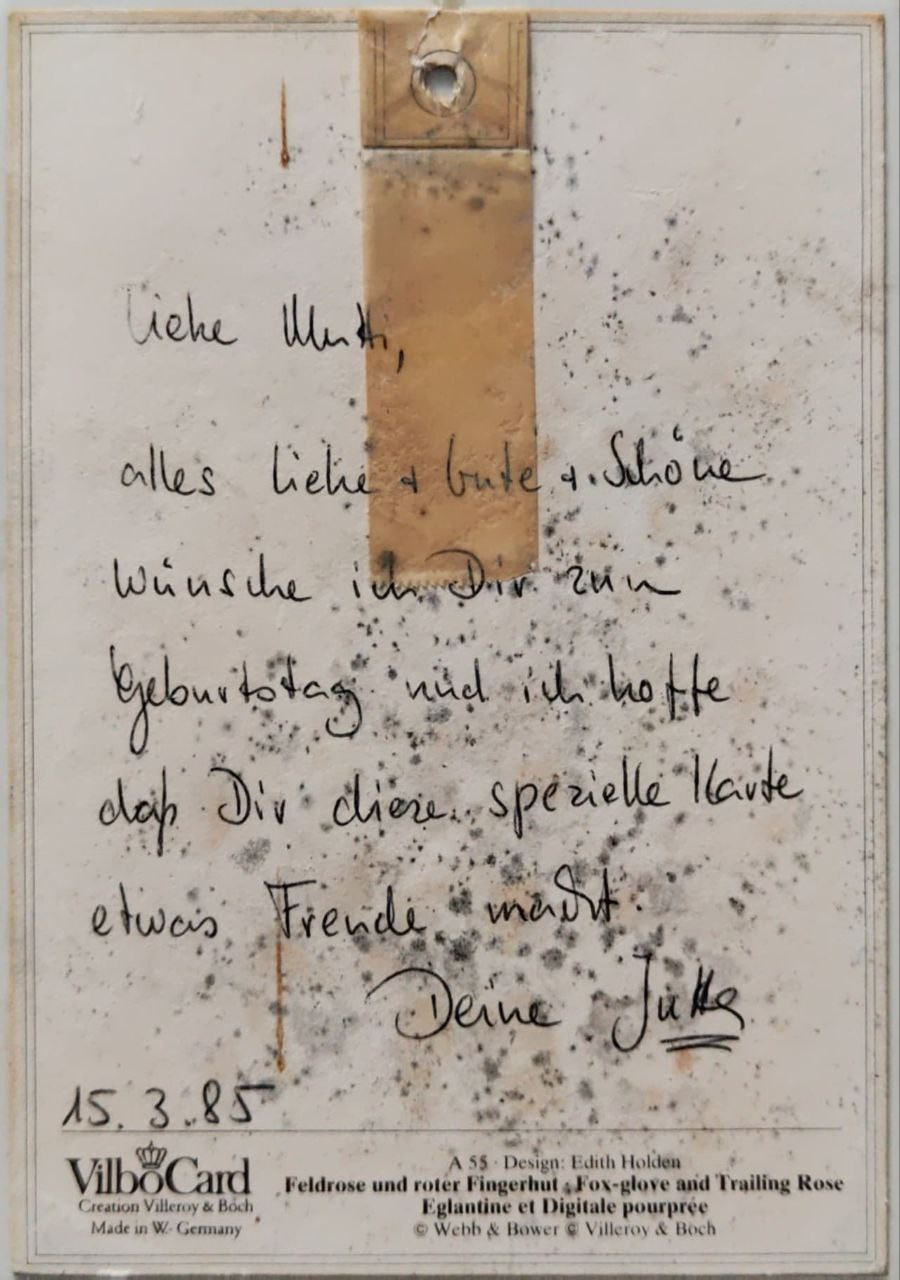 Liebe Mutti,
alles Liebe + Gute + Schöne
wünsche ich Dir zum
Geburtstag und ich hoffe
daß Dir diese spezielle Karte
etwas Freude macht.
Deine Jutta
15.3.85
VilboCard
Creation Villeroy & Boch
Made in W.- Germany
A 55 · Design: Edith Holden
Feldrose und roter Fingerhut · Fox-glove and Trailing Rose
Eglantine et Digitale pourprée
© Webb & Bower © Villeroy & Boch